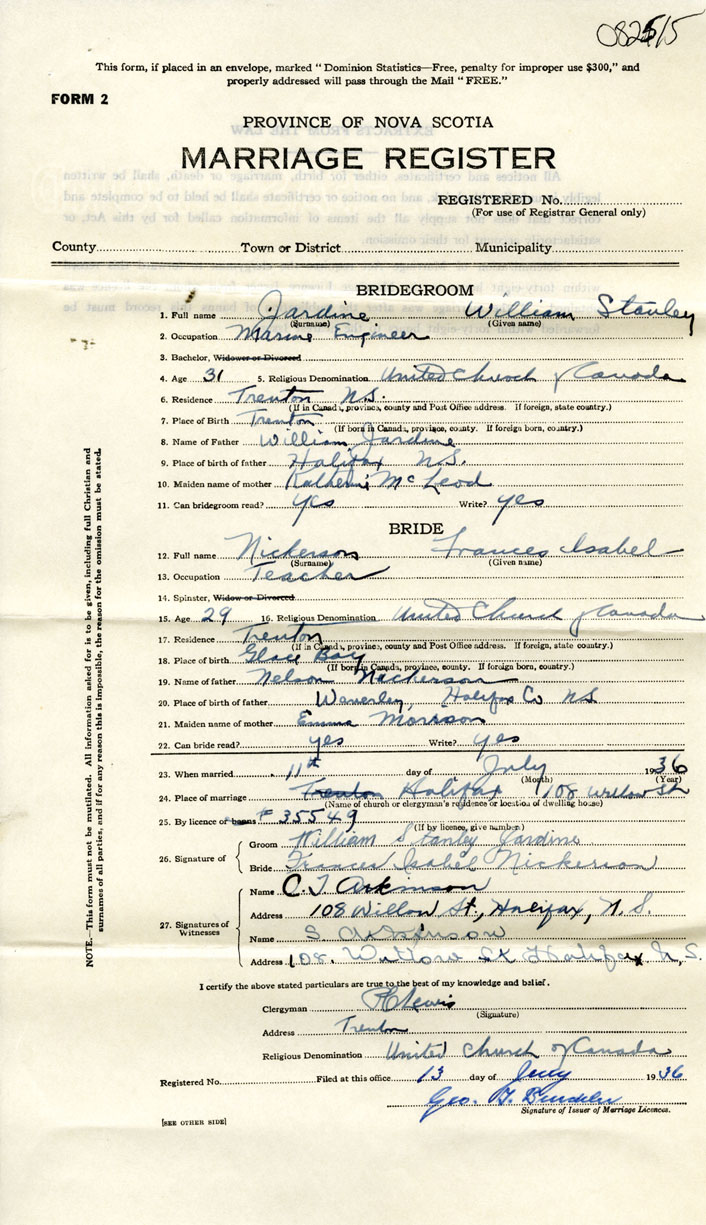 082515
This form, if placed in an envelope, marked "Dominion Statistics—Free, penalty for improper use $300," and
properly addressed will pass through the Mail "FREE."
FORM 2
PROVINCE OF NOVA SCOTIA
MARRIAGE REGISTER
REGISTERED No.
(For use of Registrar General only)
County Town or District Municipality
BRIDEGROOM
1. Full name Jardine William Stanley
(Surname) (Given name)
2. Occupation Marine Engineer
3. Bachelor, Widower or Divorced
4. Age 31 5. Religious Denomination United Church of Canada
6. Residence Trenton N.S.
(If in Canada, province, county and Post Office address. If foreign, state country.)
7. Place of Birth Trenton
(If born in Canada, province, county. If foreign born, country.)
8. Name of Father William Jardine
9. Place of birth of father Halifax N.S.
10. Maiden name of mother Katherine McLeod
11. Can bridegroom read? yes Write? yes
BRIDE
12. Full name Nickerson Frances Isabel
(Surname) (Given name)
13. Occupation Teacher
14. Spinster, Widow or Divorced
15. Age 29 16. Religious Denomination United Church of Canada
17. Residence Trenton
(If in Canada, province, county and Post Office address. If foreign, state country.)
18. Place of birth Glace Bay
(If born in Canada, province, county. If foreign born, country.)
19. Name of father Nelson Nickerson
20. Place of birth of father Waverley, Halifax Co NS
21. Maiden name of mother Emma Morrison
22. Can bride read? yes Write? yes
23. When married 11th day of July 1936
(Month) (Year)
24. Place of marriage Trenton Halifax 108 Willow St
(Name of church or clergyman's residence or location of dwelling house)
25. By licence or banns # 35549
(If by licence, give number)
26. Signature of
Groom William Stanley Jardine
Bride Frances Isabel Nickerson
27. Signatures of Witnesses
Name C. T. Atkinson
Address 108 Willow St., Halifax, N.S.
Name S. Atkinson
Address 108. Willow St Halifax N.S.
I certify the above stated particulars are true to the best of my knowledge and belief.
Clergyman Lewis
(Signature)
Address Trenton
Religious Denomination United Church of Canada
Registered No. Filed at this office 13 day of July 1936
Geo.
Signature of Issuer of Marriage Licences.
[SEE OTHER SIDE]
NOTE.—This form must not be mutilated. All information asked for is to be given, including full Christian and
surnames of all parties, and if for any reason this is impossible, the reason for the omission must be stated.